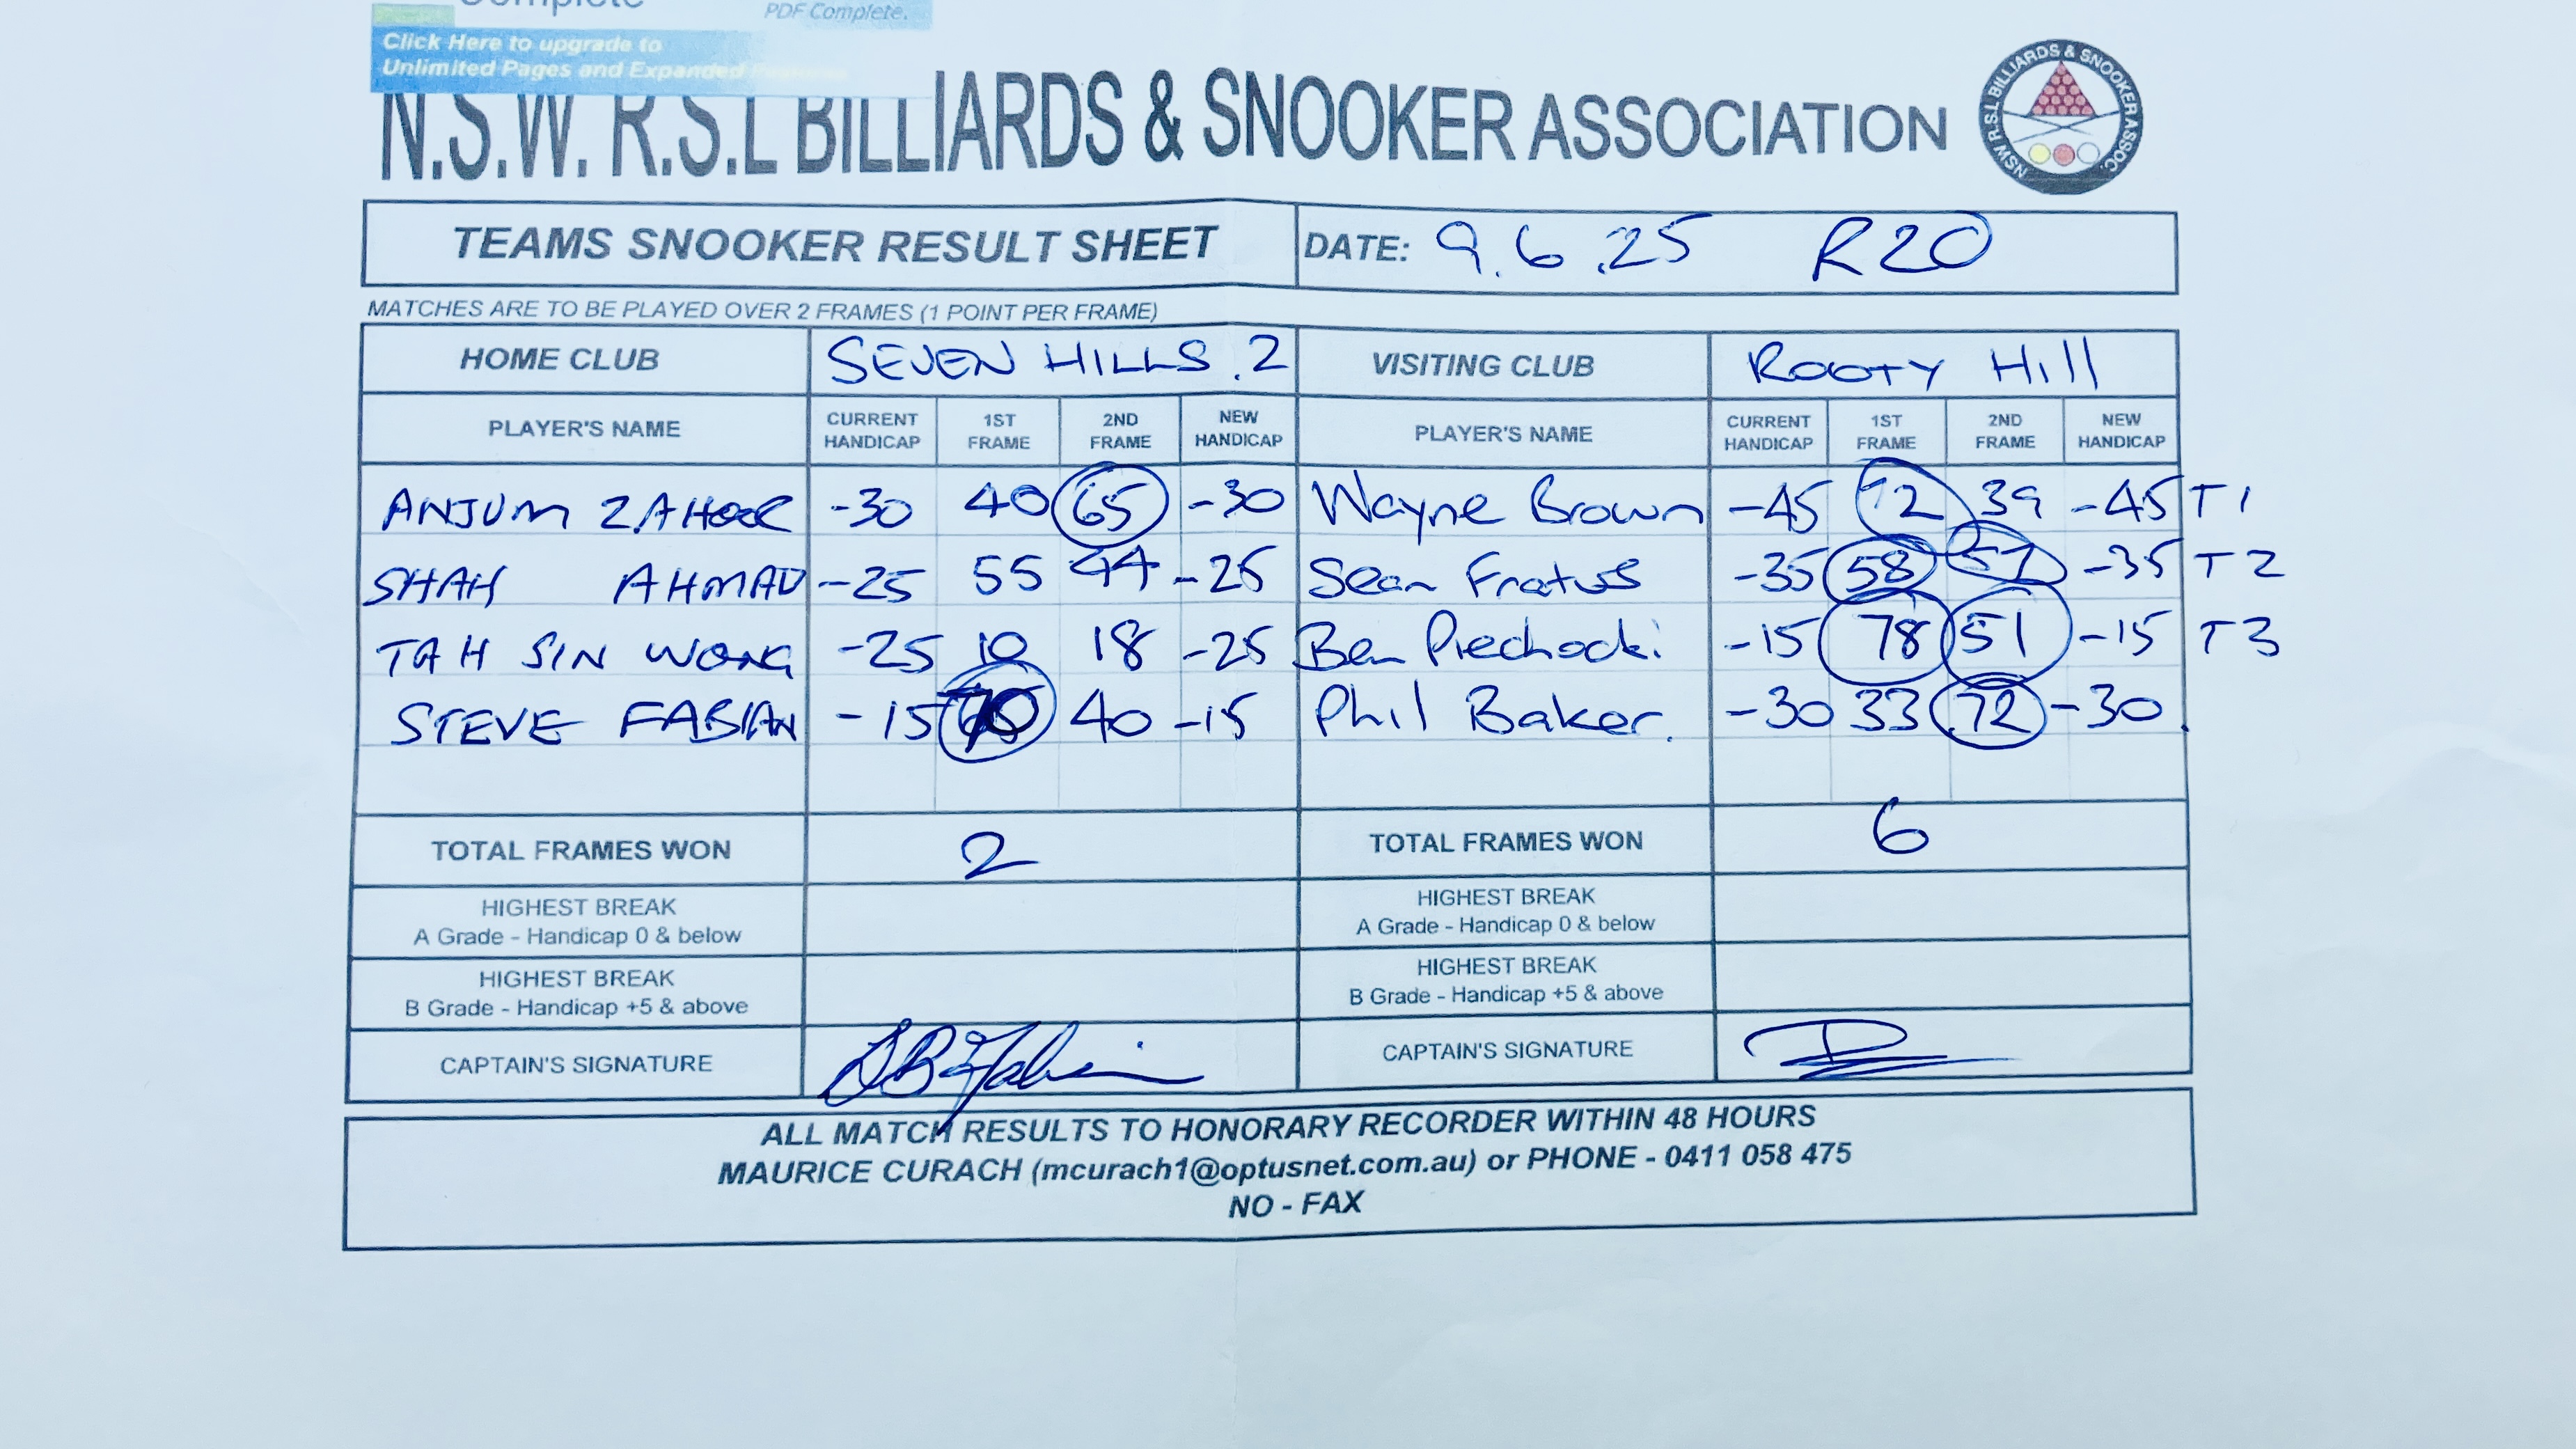 Complete
PDF Complete.
Click Here to upgrade to
Unlimited Pages and Expanded Features
N.S.W. R.S.L BILLIARDS & SNOOKER ASSOCIATION
NSW R.S.L BILLIARDS & SNOOKER ASSOC.
TEAMS SNOOKER RESULT SHEET DATE: 9.6.25 R20
MATCHES ARE TO BE PLAYED OVER 2 FRAMES (1 POINT PER FRAME)
HOME CLUB SEVEN HILLS .2 VISITING CLUB ROOTY Hill
PLAYER'S NAME CURRENT HANDICAP 1ST FRAME 2ND FRAME NEW HANDICAP PLAYER'S NAME CURRENT HANDICAP 1ST FRAME 2ND FRAME NEW HANDICAP
ANJUM ZAHOOR -30 40 65 -30 Wayne Brown -45 72 39 -45 T1
SHAH AHMAD -25 55 44 -25 Sean Fratus -35 58 57 -35 T2
TAH SIN WONG -25 10 18 -25 Ben Piechocki -15 78 51 -15 T3
STEVE FABIAN -15 70 40 -15 Phil Baker. -30 33 72 -30.
TOTAL FRAMES WON 2 TOTAL FRAMES WON 6
HIGHEST BREAK
A Grade - Handicap 0 & below
HIGHEST BREAK
A Grade - Handicap 0 & below
HIGHEST BREAK
B Grade - Handicap +5 & above
HIGHEST BREAK
B Grade - Handicap +5 & above
CAPTAIN'S SIGNATURE CAPTAIN'S SIGNATURE
ALL MATCH RESULTS TO HONORARY RECORDER WITHIN 48 HOURS
MAURICE CURACH (mcurach1@optusnet.com.au) or PHONE - 0411 058 475
NO - FAX